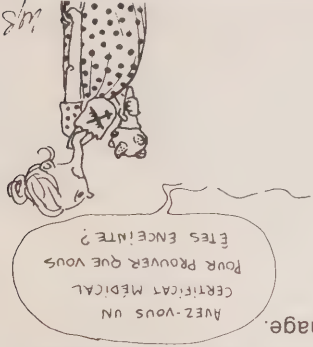 nage.
AVEZ-VOUS UN
CERTIFICAT MÉDICAL
POUR PROUVER QUE VOUS
ÊTES ENCEINTE ?